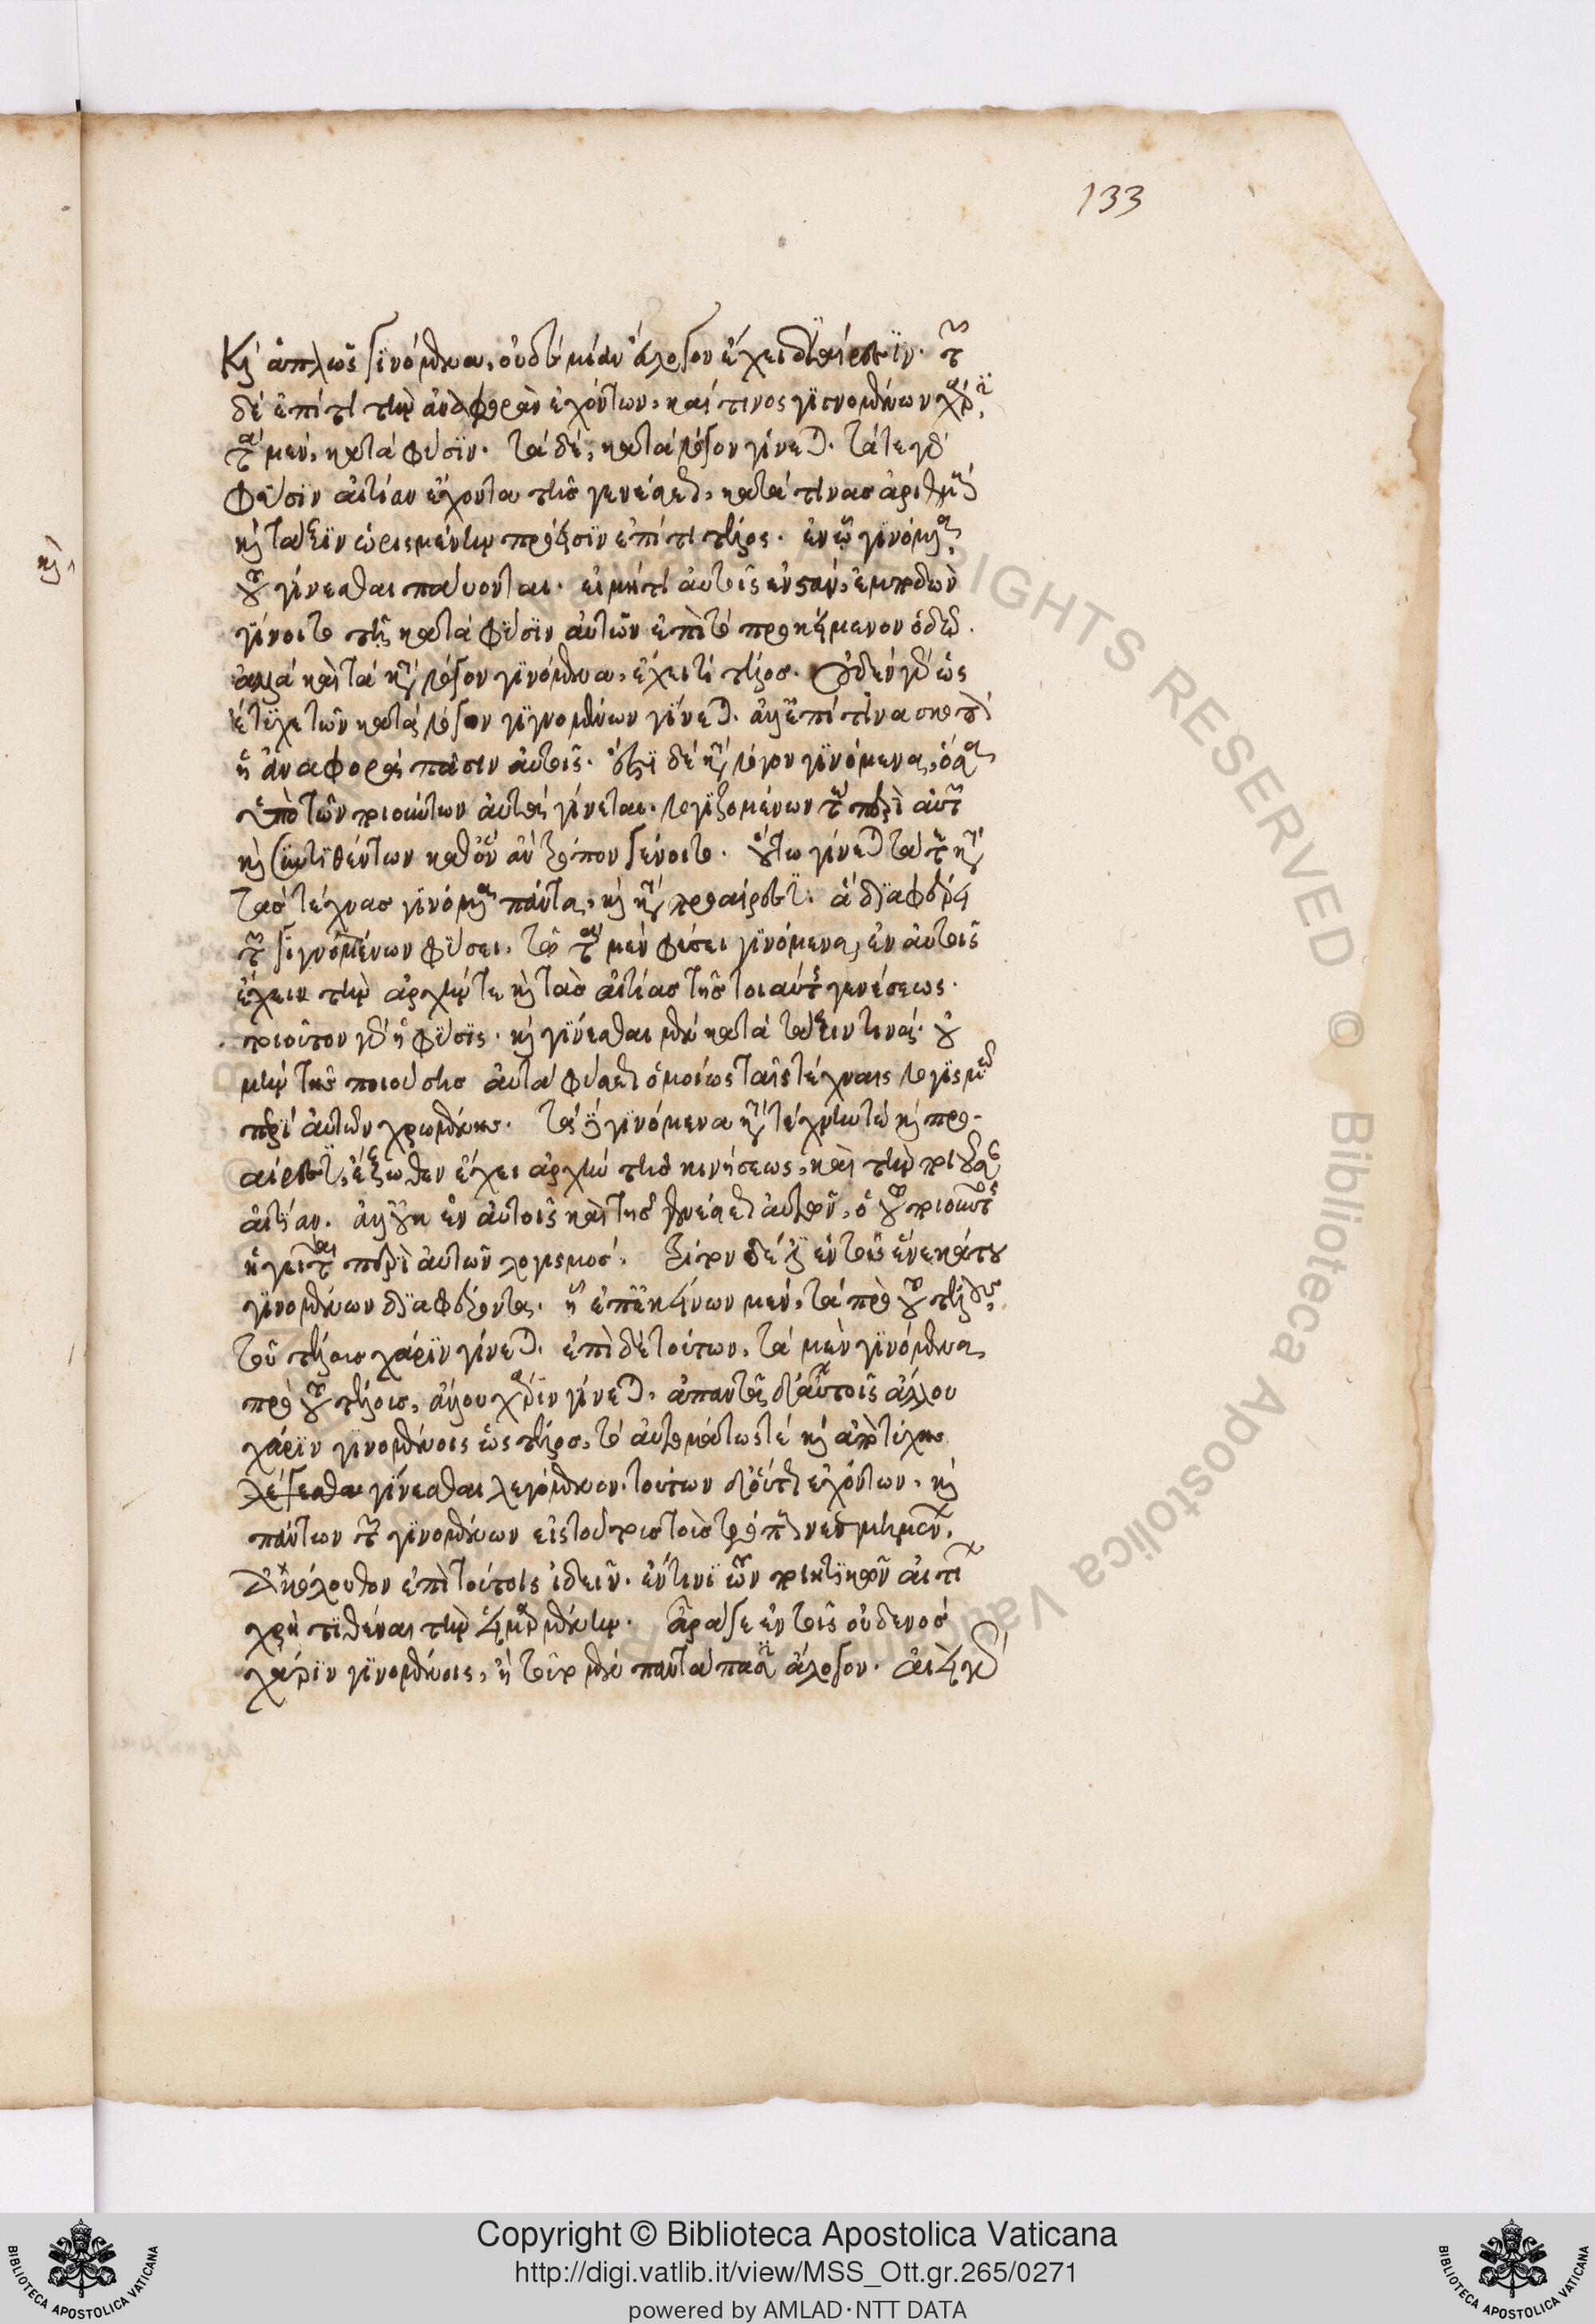 133
Καὶ ἁπλῶς γινόμενα, οὐδὲ μίαν εὔλογον ἔχει διαίρεσιν. τῶν
δὲ ἐπί τι τὴν ἀναφορὰν ἐχόντων, καί τινος γινομένων χάριν,
τὰ μὲν, κατὰ φύσιν. τὰ δὲ, κατὰ λόγον γίνεται. τά τε γὰρ
φύσιν αἰτίαν ἔχοντα τῆς γενέσεως, κατά τινας ἀριθμοὺς
καὶ τάξιν ὡρισμένην πρόεισιν ἐπί τι τέλος. ἐν ᾧ γινόμενα,
τοῦ γίνεσθαι παύονται. εἰ μή τι αὐτοῖς ἐνστὰν, ἐμποδὼν
γένοιτο τῇ κατὰ φύσιν αὐτῶν ἐπὶ τὸ προκείμενον ὁδῷ.
ἀλλὰ καὶ τὰ κατὰ λόγον γινόμενα, ἔχει τι τέλος. οὐδὲν γὰρ ὡς
ἔτυχε τῶν κατὰ λόγον γιγνομένων γίνεται. ἀλλ' ἐπί τινα σκοπὸν
ἡ ἀναφορὰ πᾶσιν αὐτοῖς. ἔστι δὲ κατὰ λόγον γινόμενα, ὅσα
ὑπὸ τῶν ποιούντων αὐτὰ γίνεται. λογιζομένων τε περὶ αὐτῶν
καὶ συντιθέντων καθ' ὃν ἂν τρόπον γένοιτο. οὕτω γίνεται τά τε κατὰ
τὰς τέχνας γινόμενα πάντα, καὶ κατὰ προαίρεσιν. ἃ διαφέρει
τῶν γιγνομένων φύσει. τῷ τὰ μὲν φύσει γινόμενα, ἐν αὐτοῖς
ἔχειν τὴν ἀρχήν τε καὶ τὰς αἰτίας τῆς τοιαύτης γενέσεως.
τοιοῦτον γὰρ ἡ φύσις. καὶ γίνεσθαι μὲν κατὰ τάξιν τινά. οὐ
μὴν τῆς ποιούσης αὐτὰ φύσεως ὁμοίως ταῖς τέχναις λογισμῷ
περὶ αὐτῶν χρωμένης. τὰ δὲ γινόμενα κατὰ τέχνην τε καὶ προ-
αίρεσιν, ἔξωθεν ἔχει ἀρχὴν τῆς κινήσεως, καὶ τὴν ποιοῦσαν
αἰτίαν. ἀλλ' οὐκ ἐν αὐτοῖς καὶ τῆς γενέσεως αὐτῶν, ὁ τοῦ ποιοῦντος
γίνεται περὶ αὐτῶν λογισμός. τρίτον δέ ἐστι ἐν τοῖς ἕνεκά του
γινομένων διαφέροντα. ἢ ἐπ' ἐκείνων μὲν, τὰ πρὸ τοῦ τέλους,
τοῦ τέλους χάριν γίνεται. ἐπὶ δὲ τούτων, τὰ μὲν γινόμενα
πρὸ τοῦ τέλους, ἄλλου χάριν γίνεται. ἀπαντᾷ δ' αὐτοῖς ἄλλου
χάριν γινομένοις ὡς τέλος, τὸ αὐτομάτως τε καὶ ἀπὸ τύχης
λέγεσθαι γίνεσθαι λεγόμενον. τούτων δ' οὕτως ἐχόντων, καὶ
πάντων τῶν γινομένων εἰς τοὺς
ἀκόλουθον ἐπὶ τούτοις ἰδεῖν. ἐν τίνι τῶν ποιητικῶν αἰτίων
χρὴ τιθέναι τὴν εἱμαρμένην. ἆρά γε ἐν τοῖς οὐδενὸς
χάριν γινομένοις, ἢ τοῦτο μὲν παντάπασιν ἄλογον. ἀεὶ γὰρ
καὶ
Copyright © Biblioteca Apostolica Vaticana
http://digi.vatlib.it/view/MSS_Ott.gr.265/0271
powered by AMLAD·NTT DATA